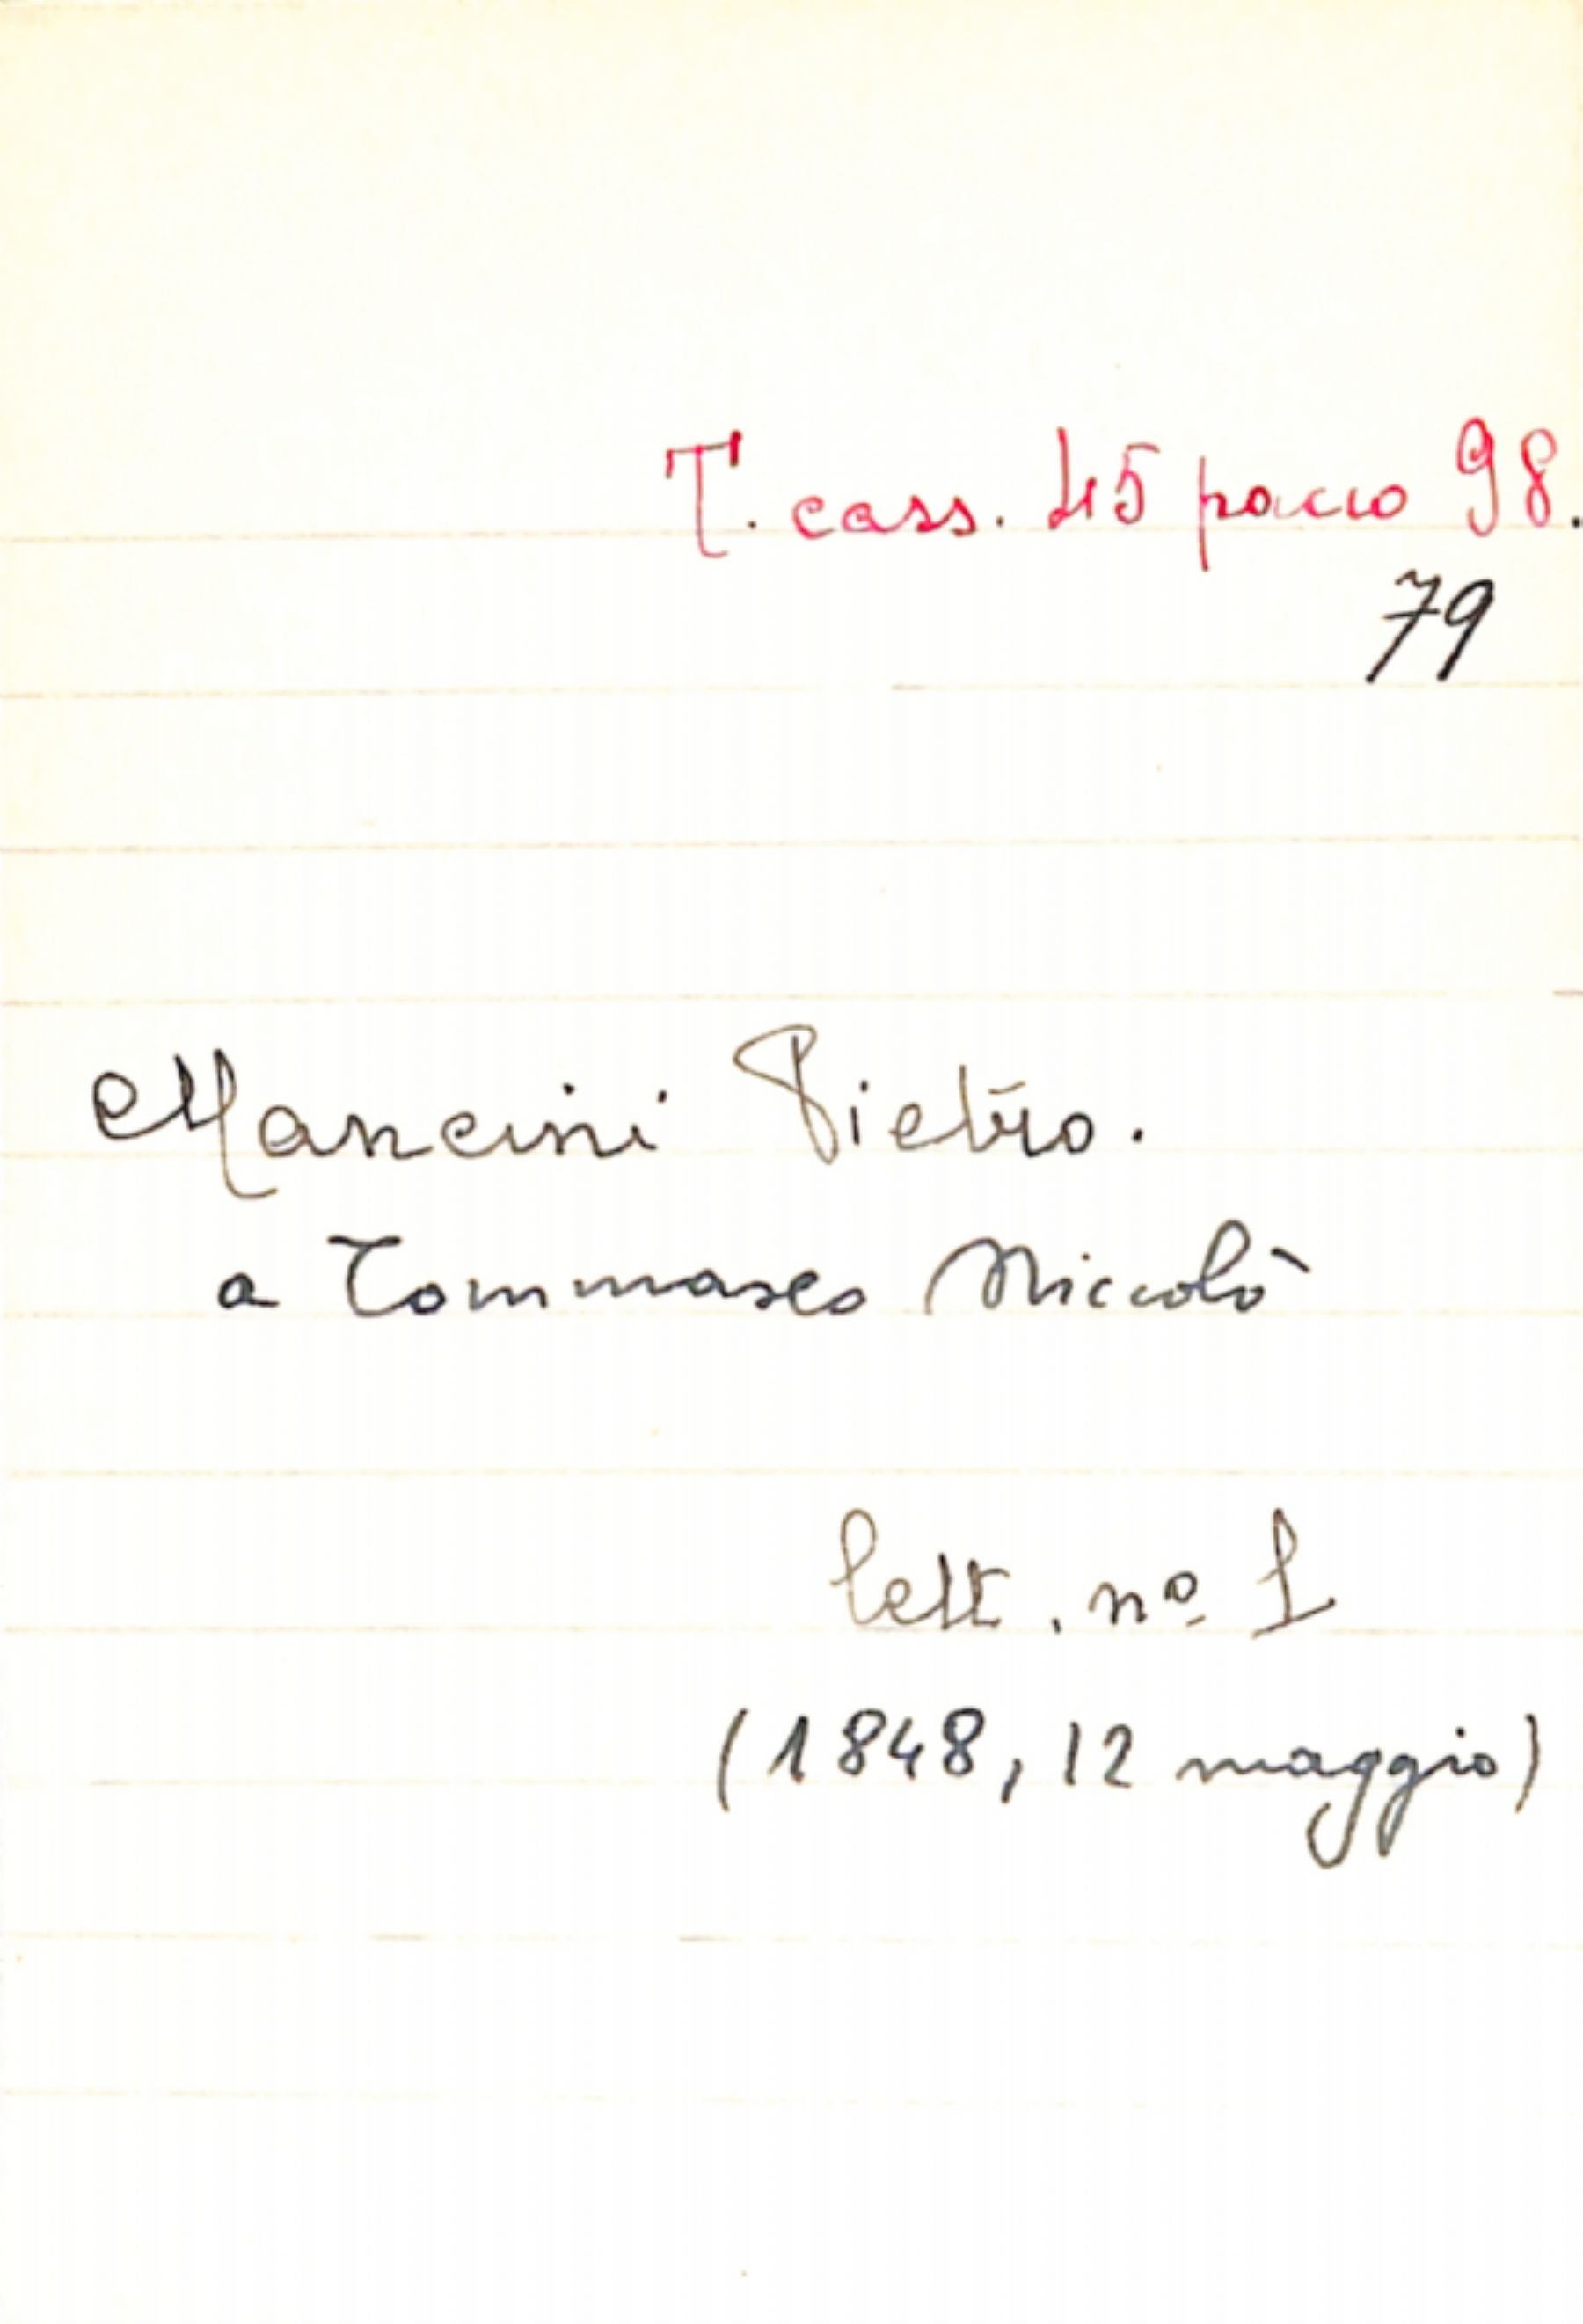 T. cass. 45 pacco 98.
79
Mancini Pietro.
a Tommaseo Niccolò
lett. nº 1
(1848, 12 maggio)